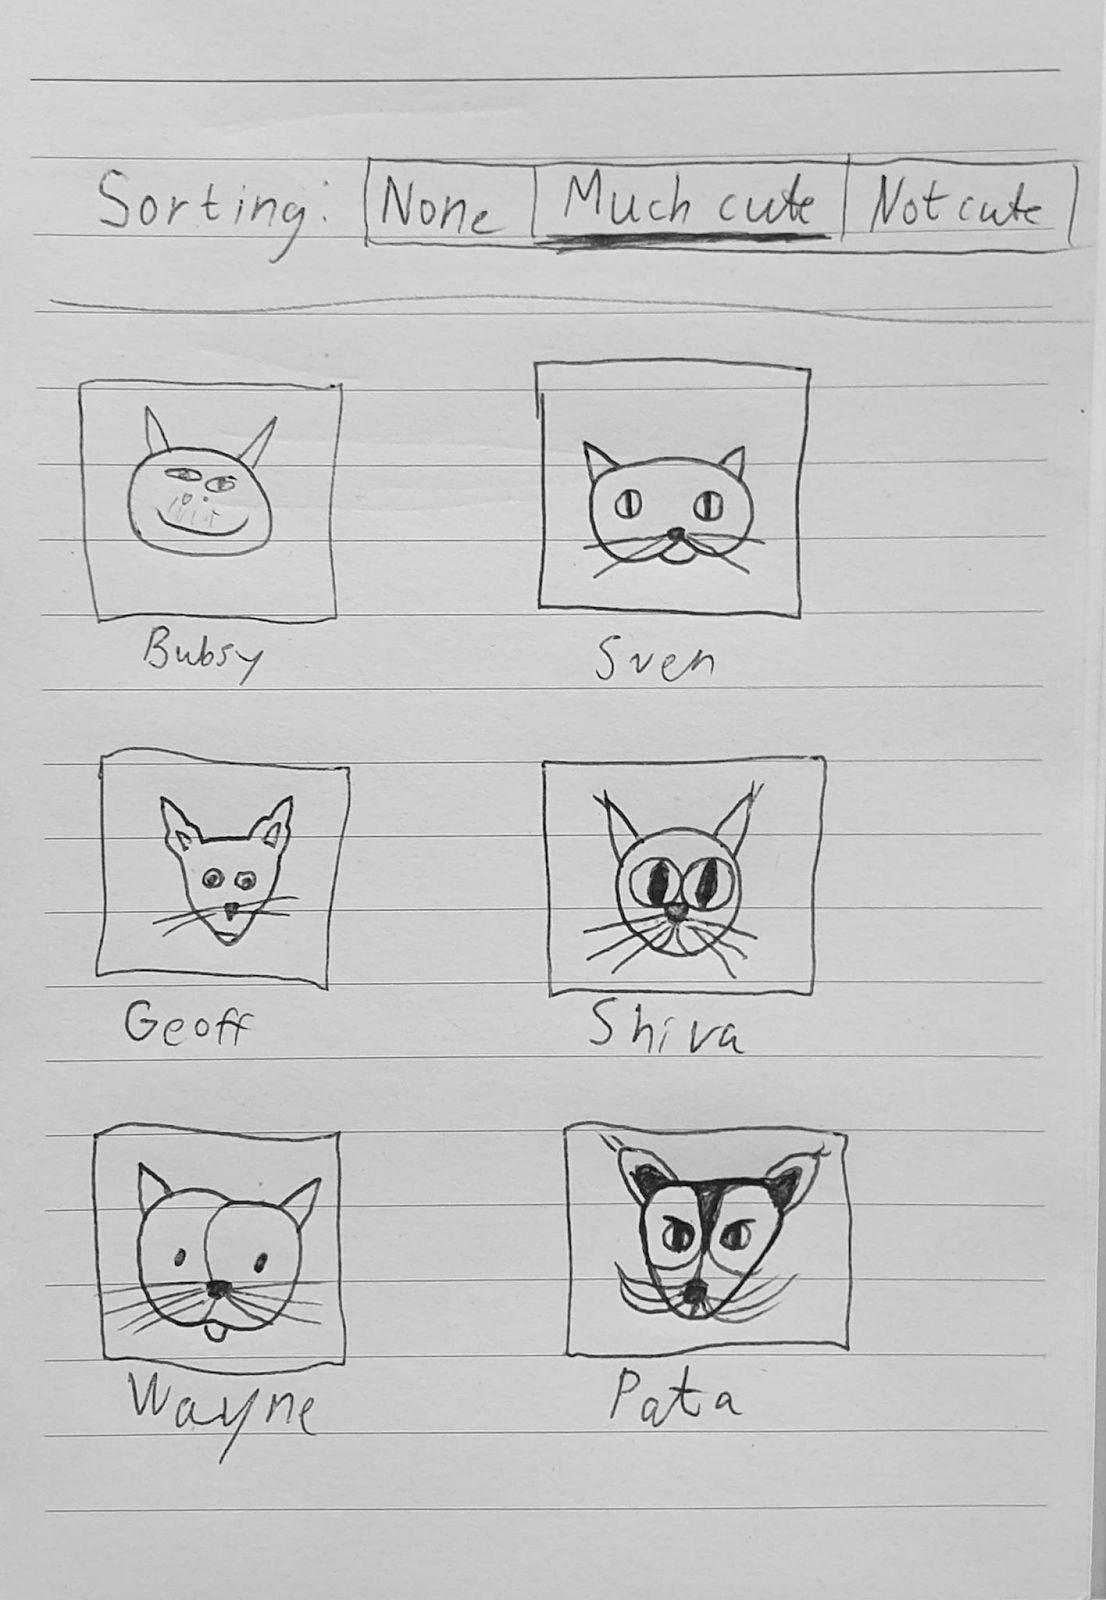 Sorting: None Much cute Not cute
Bubsy Sven
Geoff Shiva
Wayne Pata